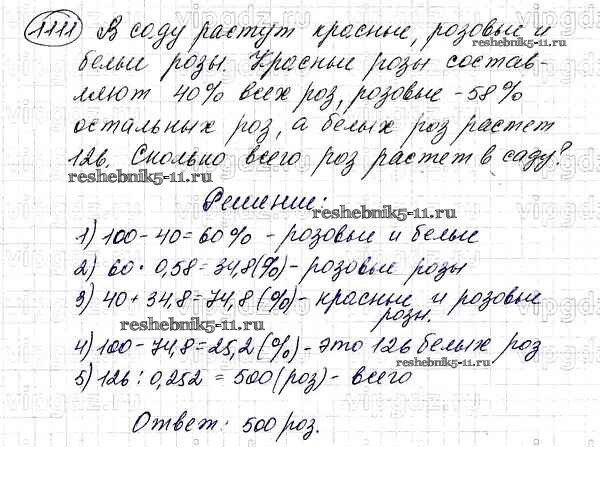 1111 В саду растут красные, розовые и
reshebnik5-11.ru
белые розы. Красные розы состав-
ляют 40% всех роз, розовые - 58%
остальных роз, а белых роз растет
126. Сколько всего роз растет в саду?
reshebnik5-11.ru
Решение:
reshebnik5-11.ru
1) 100-40=60% - розовые и белые
2) 60 · 0,58=34,8(%)- розовые розы
3) 40+34,8=74,8(%)- красные и розовые
розы.
reshebnik5-11.ru
4) 100-74,8=25,2(%)- это 126 белых роз
reshebnik5-11.ru
5) 126 : 0,252 = 500 (роз) - всего
Ответ: 500 роз.